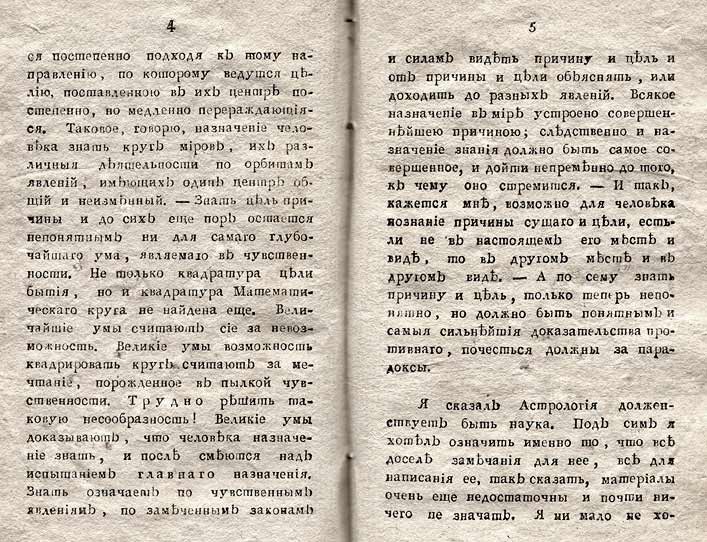 4
ся постепенно подходя къ тому на-
правленію, по которому ведутся цѣ-
лію, поставленною въ ихъ центрѣ по-
степенно, но медленно перераждающія-
ся. Таковое, говорю, назначеніе чело-
вѣка знать кругъ міровъ, ихъ раз-
личныя дѣятельности по орбитамъ
явленій, имѣющихъ одинъ центръ об-
щій и неизмѣнный. — Знать цѣль при-
чины и до сихъ еще поръ остается
непонятнымъ ни для самаго глубо-
чайшаго ума, являемаго въ чувствен-
ности. Не только квадратура цѣли
бытія, но и квадратура Математи-
ческаго круга не найдена еще. Вели-
чайшіе умы считаютъ сіе за невоз-
можность. Великіе умы возможность
квадрировать кругъ считаютъ за ме-
чтаніе, порожденное въ пылкой чув-
ственности. Трудно рѣшить та-
ковую несообразность! Великіе умы
доказываютъ, что человѣка назначе-
ніе знать, и послѣ смѣются надъ
испытаніемъ главнаго назначенія.
Знать означаетъ по чувственнымъ
явленіямъ, по замѣченнымъ законамъ
5
и силамъ видѣть причину и цѣль и
отъ причины и цѣли объяснять, или
доходить до разныхъ явленій. Всякое
назначеніе въ мірѣ устроено совершен-
нѣйшею причиною; слѣдственно и на-
значеніе знанія должно быть самое со-
вершенное, и дойти непремѣнно до того,
къ чему оно стремится. — И такъ,
кажется мнѣ, возможно для человѣка
познаніе причины сущаго и цѣли, есть-
ли не въ настоящемъ его мѣстѣ и
видѣ, то въ другомъ мѣстѣ и въ
другомъ видѣ. — А по сему знать
причину и цѣль, только теперь непо-
нятно, но должно быть понятнымъ и
самыя сильнѣйшія доказательства про-
тивнаго, почесться должны за пара-
доксы.
Я сказалъ Астрологія должен-
ствуетъ быть наука. Подъ симъ я
хотѣлъ означить именно то, что всѣ
доселѣ замѣчанія для нее, всѣ для
написанія ее, такъ сказать, матеріалы
очень еще недостаточны и почти ни-
чего не значатъ. Я ни мало не хо-